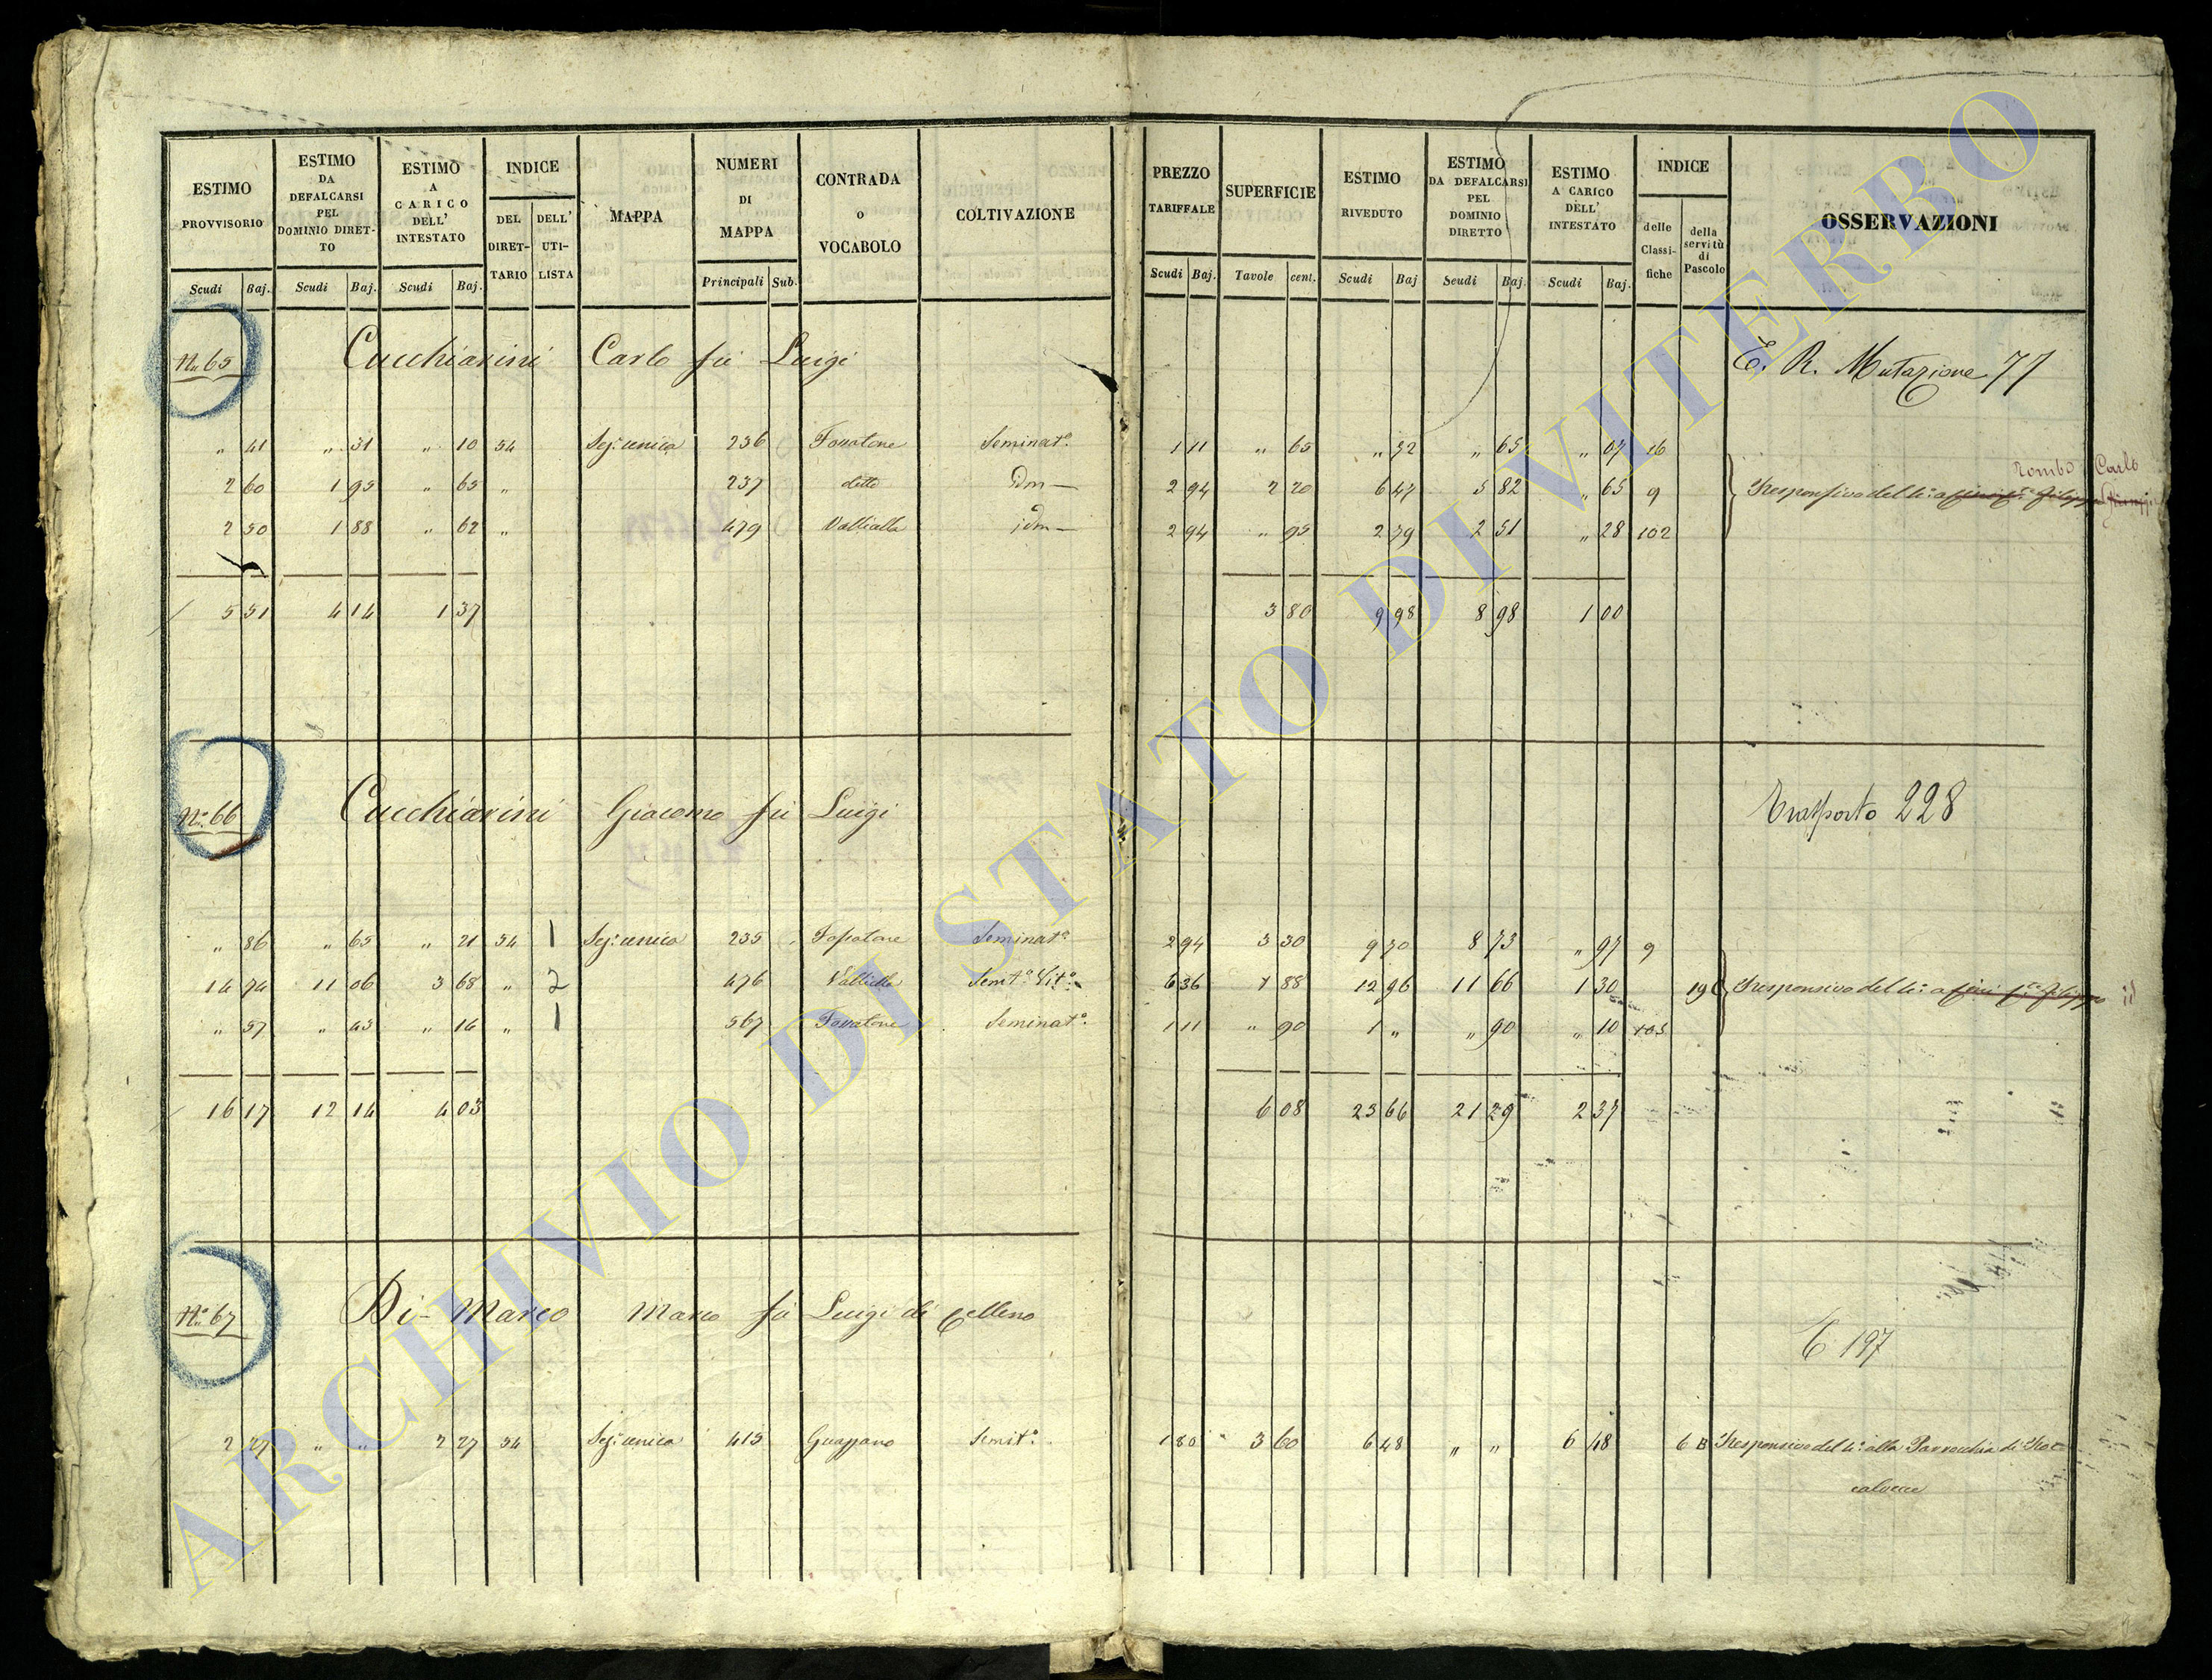 ESTIMO PROVVISORIO
ESTIMO DA DEFALCARSI PEL DOMINIO DIRET- TO
ESTIMO A CARICO DELL' INTESTATO
INDICE
DEL DIRET- TARIO
DELL' UTI- LISTA
MAPPA
NUMERI DI MAPPA
CONTRADA O VOCABOLO
COLTIVAZIONE
PREZZO TARIFFALE
SUPERFICIE
ESTIMO RIVEDUTO
ESTIMO DA DEFALCARSI PEL DOMINIO DIRETTO
ESTIMO A CARICO DELL' INTESTATO
INDICE
delle Classi- fiche
della servitù di Pascolo
OSSERVAZIONI
Scudi Baj. Scudi Baj. Scudi Baj. Principali Sub. Scudi Baj. Tavole cent. Scudi Baj Scudi Baj. Scudi Baj.
No 65 Cucchiarini Carlo fu Luigi E. R. Mutazione 77
" 41 " 31 " 10 54 Sez: unica 236 Seminat.o 1 11 " 65 " 72 " 65 " 07 16
Carlo
2 60 1 95 " 65 " 237 detto idm— 2 94 2 20 6 47 5 82 " 65 9 Responsivo del 4:o a
2 50 1 88 " 62 " 479 idm— 2 94 " 95 2 79 2 51 " 28 102
5 51 4 14 1 37 3 80 9 98 8 98 1 00
No 66 Cucchiarini Giacomo fu Luigi Trasporto 228
" 86 " 65 " 21 54 1 Sez: unica 235 Fossatone Seminat.o 2 94 3 30 9 70 8 73 " 97 9
14 74 11 06 3 68 " 2 476 Semt.o Vit.o 6 36 1 88 12 96 11 66 1 30 19 Responsivo del 4:o a
" 57 " 43 " 14 " 1 567 Seminat.o 1 11 " 90 1 " " 90 " 10 103
16 17 12 14 4 03 6 08 23 66 21 29 2 37
No 67 Di-Marco Marco fu Luigi di Celleno
197
2 27 " " 2 27 54 Sez: unica 415 Semit.o 1 80 3 60 6 48 " " 6 48 6 B Responsivo del 4:o alla Parrocchia di Roc-
calvecce
ARCHIVIO DI STATO DI VITERBO